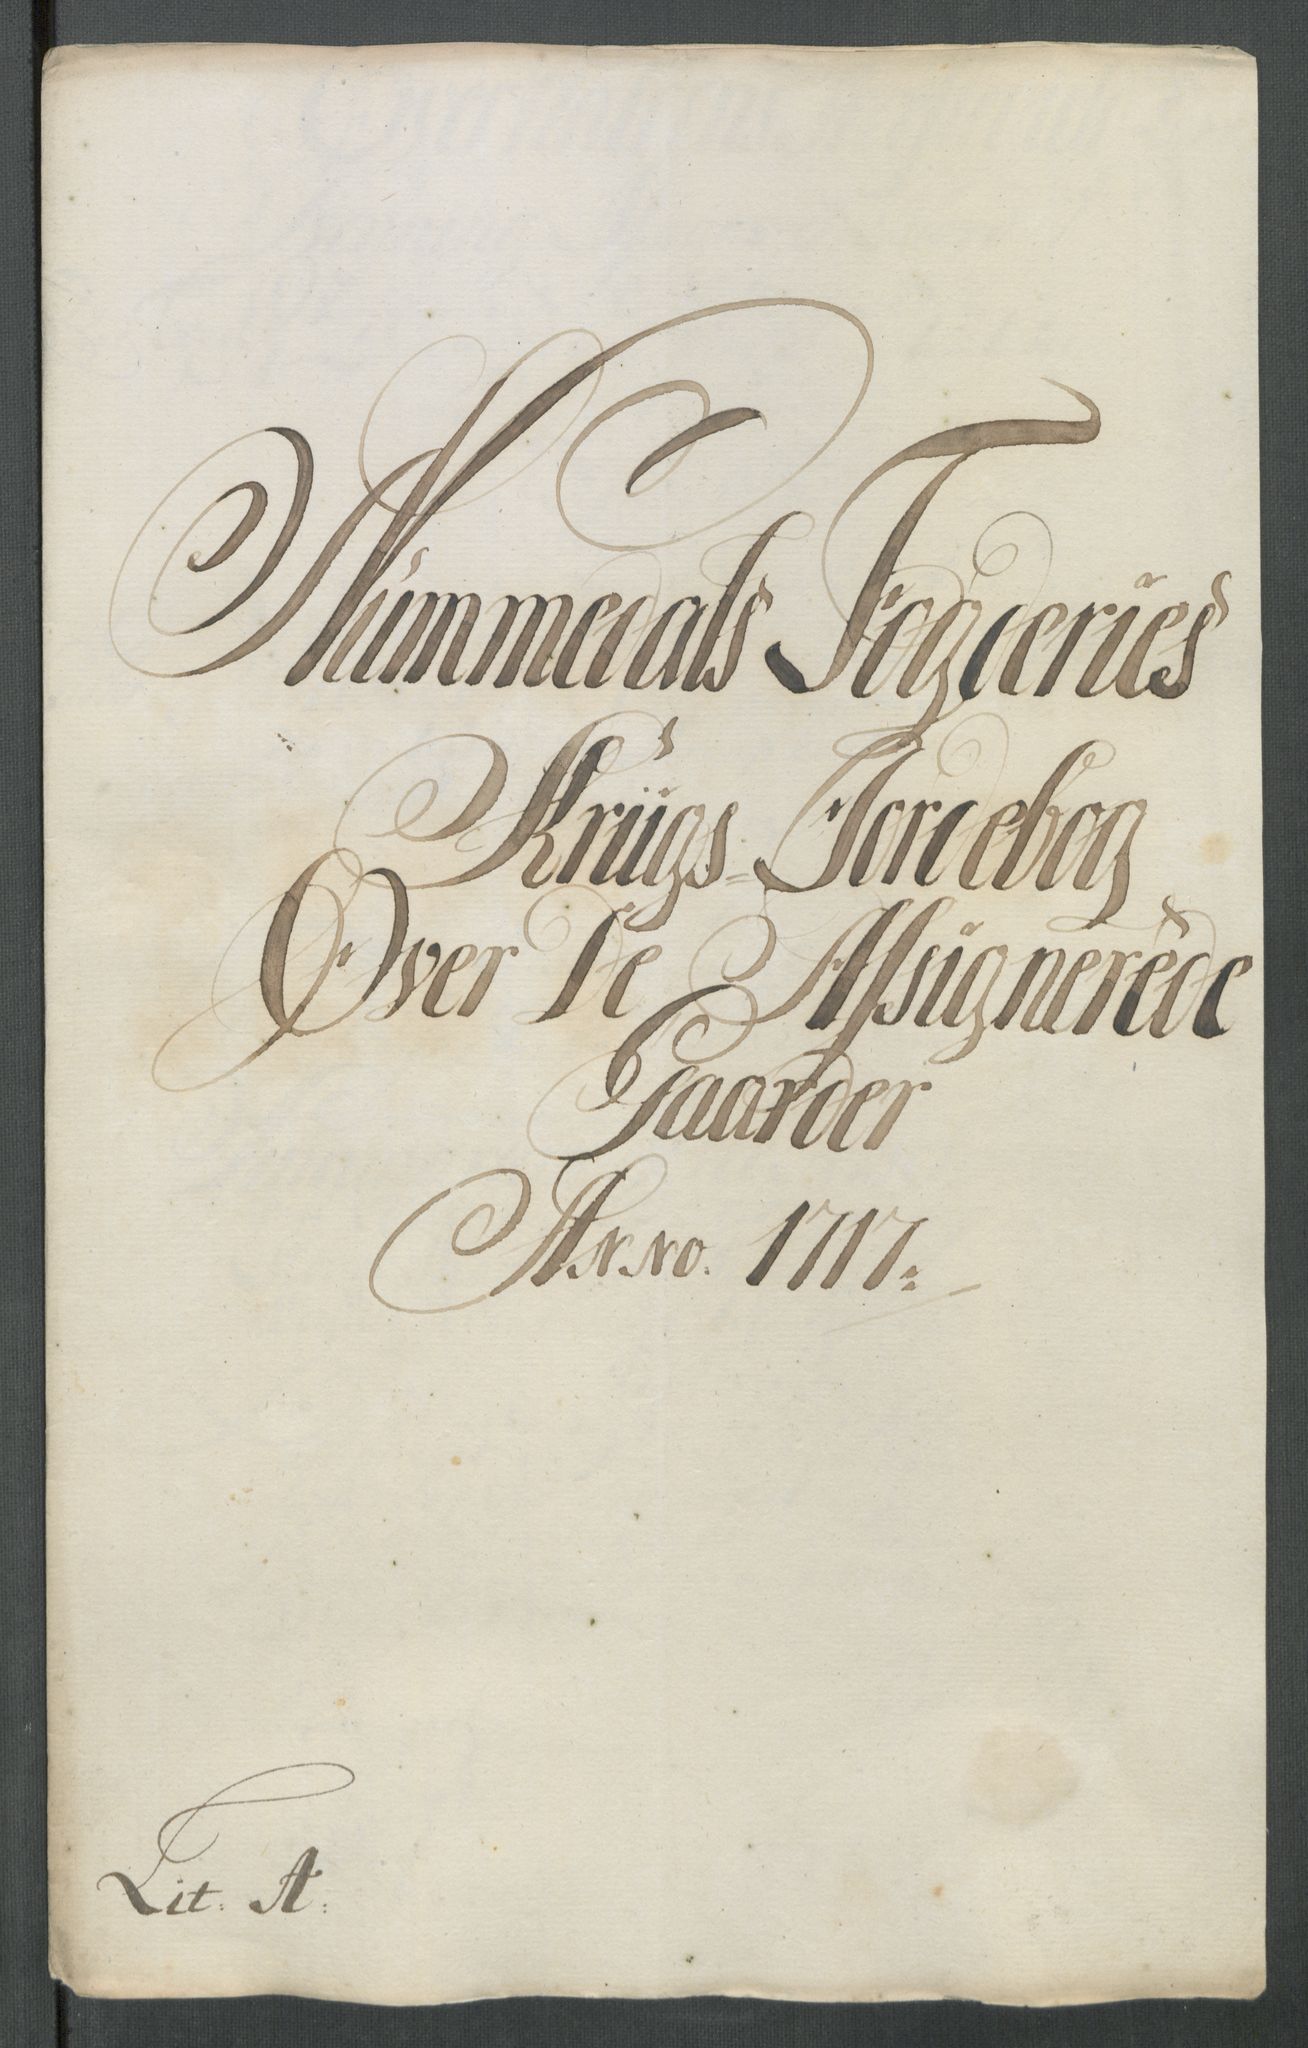 Nummedals Fogderies
Kriigs-Jordebog
Over de Assignerede
Gaarder
Anno. 1717.
Lit. A.